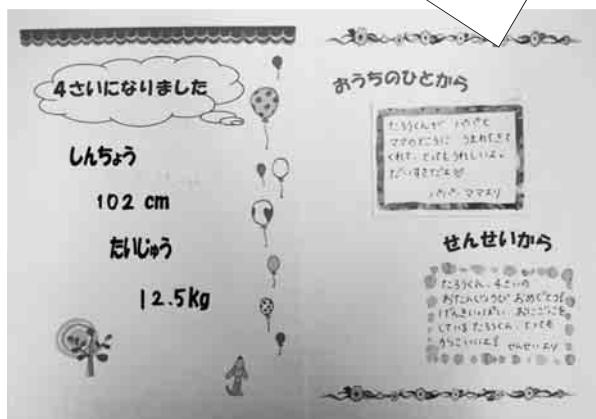 4さいになりました
しんちょう
102 cm
たいじゅう
12.5kg
おうちのひとから
たろうくんが パパと
ママのところに うまれてきて
くれて、とってもうれしいよ。
だいすきだよ
パパ・ママより
せんせいから
たろうくん、4さいの
おたんじょうび おめでとう!
げんきいっぱい おにごっこを
している たろうくん、とっても
かっこいいよ!
せんせいより